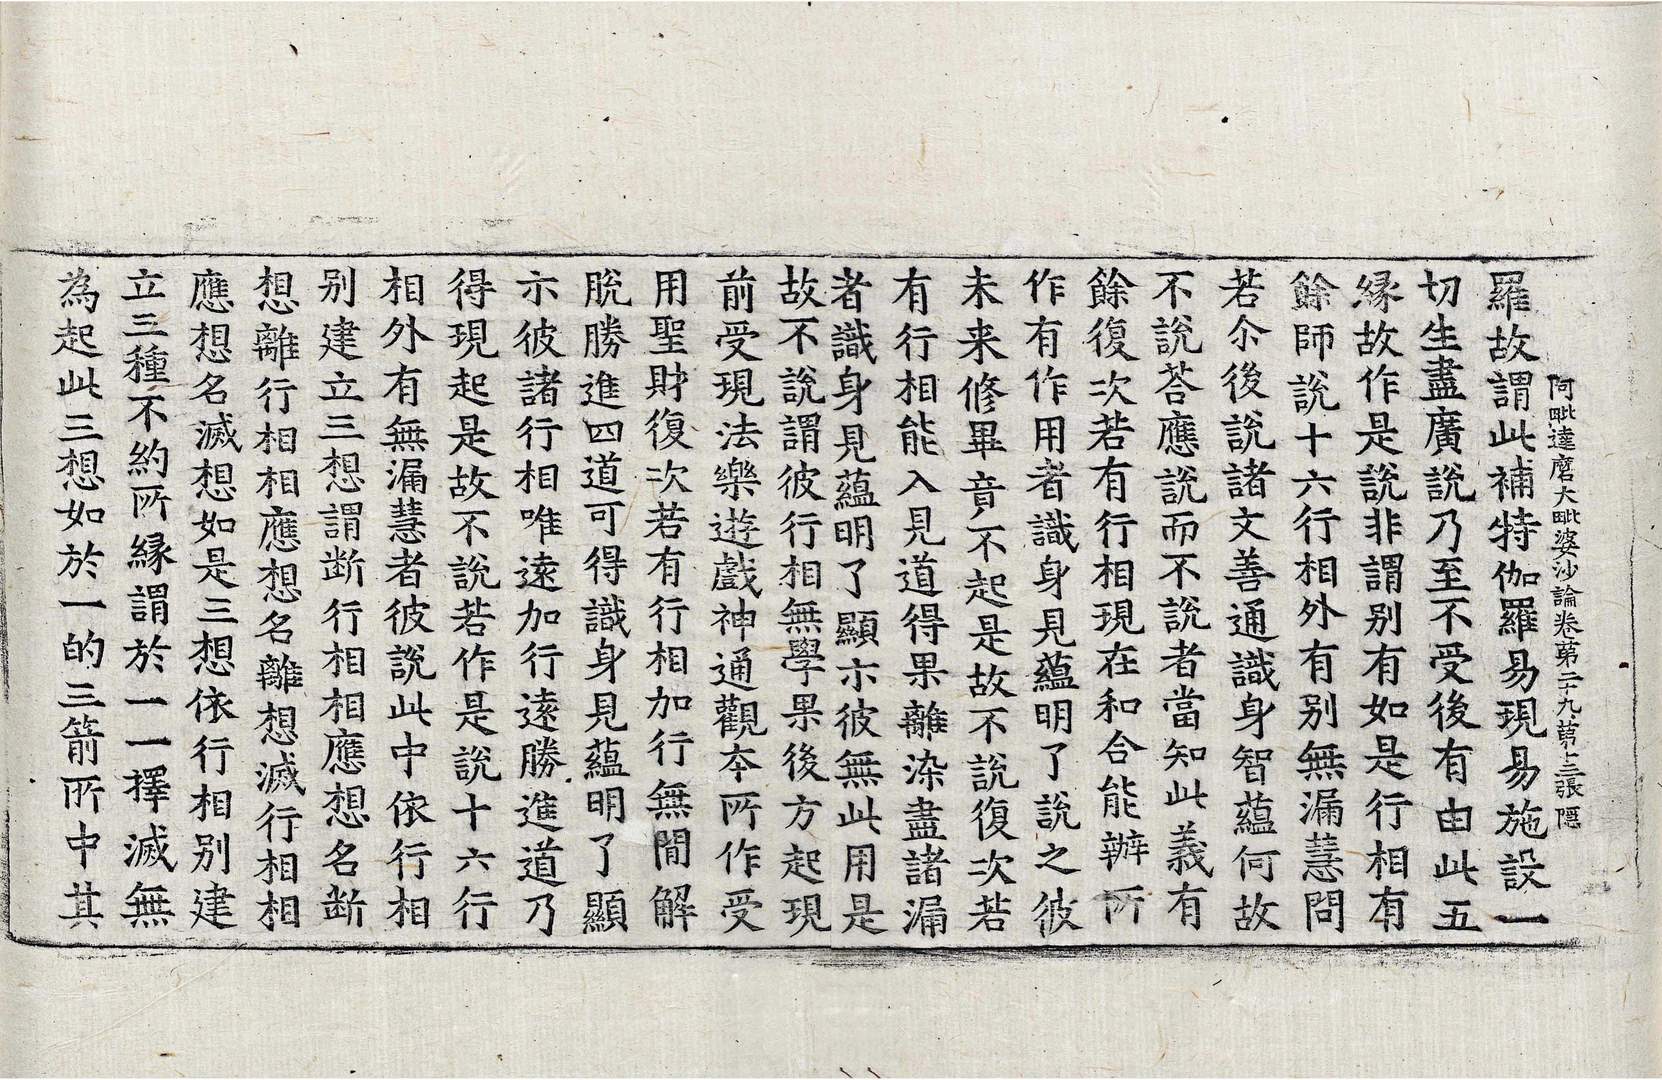 阿毗達磨大毗婆沙論卷第二十九 第十三張 隱
羅故謂此補特伽羅易現易施設一
切生盡廣說乃至不受後有由此五
緣故作是說非謂別有如是行相有
餘師說十六行相外有別無漏慧問
若尒後說諸文善通識身智蘊何故
不說荅應說而不說者當知此義有
餘復次若有行相現在和合能辦所
作有作用者識身見蘊明了說之彼
未來修畢竟不起是故不說復次若
有行相能入見道得果離染盡諸漏
者識身見蘊明了顯示彼無此用是
故不說謂彼行相無學果後方起現
前受現法樂遊戲神通觀本所作受
用聖財復次若有行相加行無閒解
脫勝進四道可得識身見蘊明了顯
示彼諸行相唯遠加行遠勝進道乃
得現起是故不說若作是說十六行
相外有無漏慧者彼說此中依行相
別建立三想謂斷行相相應想名斷
想離行相相應想名離想滅行相相
應想名滅想如是三想依行相別建
立三種不約所緣謂於一一擇滅無
為起此三想如於一的三箭所中其